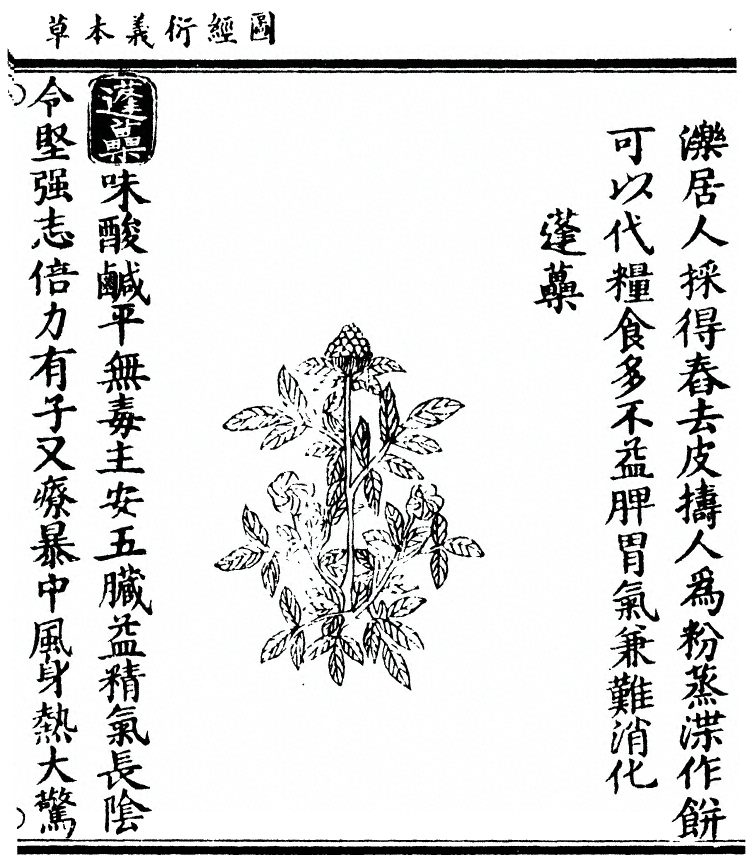 圖經衍義本草
濼居人採得舂去皮擣人爲粉蒸渫作餅
可以代糧食多不益脾胃氣兼難消化
蓬蘽
蓬蘽味酸鹹平無毒主安五臟益精氣長陰
令堅强志倍力有子又療暴中風身熱大驚